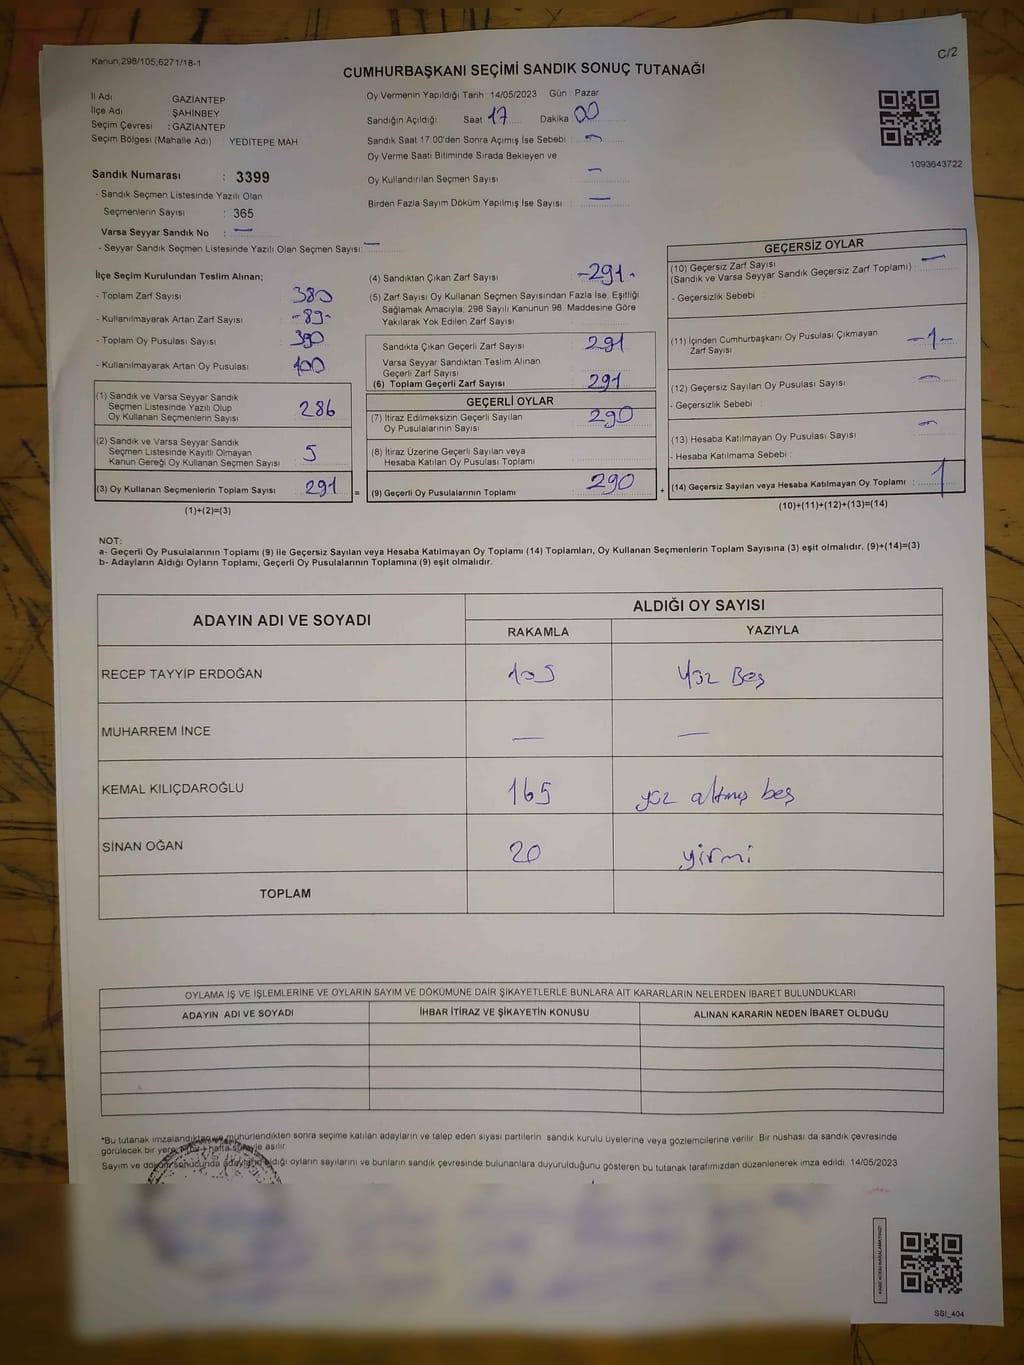 Kanun;298/105;6271/18-1
C/2
CUMHURBAŞKANI SEÇİMİ SANDIK SONUÇ TUTANAĞI
İl Adı GAZİANTEP
İlçe Adı ŞAHİNBEY
Seçim Çevresi : GAZİANTEP
Seçim Bölgesi (Mahalle Adı) YEDİTEPE MAH
Sandık Numarası : 3399
- Sandık Seçmen Listesinde Yazılı Olan
Seçmenlerin Sayısı : 365
Varsa Seyyar Sandık No : —
- Seyyar Sandık Seçmen Listesinde Yazılı Olan Seçmen Sayısı: —
Oy Vermenin Yapıldığı Tarih : 14/05/2023 Gün : Pazar
Sandığın Açıldığı Saat 17 Dakika 00
Sandık Saat 17:00'den Sonra Açımış İse Sebebi : —
Oy Verme Saati Bitiminde Sırada Bekleyen ve
Oy Kullandırılan Seçmen Sayısı : —
Birden Fazla Sayım Döküm Yapılmış İse Sayısı : —
1093643722
İlçe Seçim Kurulundan Teslim Alınan;
- Toplam Zarf Sayısı : 380
- Kullanılmayarak Artan Zarf Sayısı : -89-
- Toplam Oy Pusulası Sayısı : 390
- Kullanılmayarak Artan Oy Pusulası : 100
(1) Sandık ve Varsa Seyyar Sandık
Seçmen Listesinde Yazılı Olup
Oy Kullanan Seçmenlerin Sayısı 286
(2) Sandık ve Varsa Seyyar Sandık
Seçmen Listesinde Kayıtlı Olmayan
Kanun Gereği Oy Kullanan Seçmen Sayısı 5
(3) Oy Kullanan Seçmenlerin Toplam Sayısı 291
(1)+(2)=(3)
(4) Sandıktan Çıkan Zarf Sayısı -291-
(5) Zarf Sayısı Oy Kullanan Seçmen Sayısından Fazla İse, Eşitliği
Sağlamak Amacıyla; 298 Sayılı Kanunun 98. Maddesine Göre
Yakılarak Yok Edilen Zarf Sayısı :
Sandıkta Çıkan Geçerli Zarf Sayısı : 291
Varsa Seyyar Sandıktan Teslim Alınan
Geçerli Zarf Sayısı
(6) Toplam Geçerli Zarf Sayısı : 291
GEÇERLİ OYLAR
(7) İtiraz Edilmeksizin Geçerli Sayılan
Oy Pusulalarının Sayısı : 290
(8) İtiraz Üzerine Geçerli Sayılan veya
Hesaba Katılan Oy Pusulası Toplamı
= (9) Geçerli Oy Pusulalarının Toplamı : 290
GEÇERSİZ OYLAR
(10) Geçersiz Zarf Sayısı : —
(Sandık ve Varsa Seyyar Sandık Geçersiz Zarf Toplamı)
- Geçersizlik Sebebi :
(11) İçinden Cumhurbaşkanı Oy Pusulası Çıkmayan
Zarf Sayısı -1-
(12) Geçersiz Sayılan Oy Pusulası Sayısı : —
- Geçersizlik Sebebi :
(13) Hesaba Katılmayan Oy Pusulası Sayısı : —
- Hesaba Katılmama Sebebi :
+ (14) Geçersiz Sayılan veya Hesaba Katılmayan Oy Toplamı : 1
(10)+(11)+(12)+(13)=(14)
NOT:
a- Geçerli Oy Pusulalarının Toplamı (9) ile Geçersiz Sayılan veya Hesaba Katılmayan Oy Toplamı (14) Toplamları, Oy Kullanan Seçmenlerin Toplam Sayısına (3) eşit olmalıdır. (9)+(14)=(3)
b- Adayların Aldığı Oyların Toplamı, Geçerli Oy Pusulalarının Toplamına (9) eşit olmalıdır.
ADAYIN ADI VE SOYADI
ALDIĞI OY SAYISI
RAKAMLA YAZIYLA
RECEP TAYYİP ERDOĞAN 105 Yüz Beş
MUHARREM İNCE — —
KEMAL KILIÇDAROĞLU 165 yüz altmış beş
SİNAN OĞAN 20 yirmi
TOPLAM
OYLAMA İŞ VE İŞLEMLERİNE VE OYLARIN SAYIM VE DÖKÜMÜNE DAİR ŞİKAYETLERLE BUNLARA AİT KARARLARIN NELERDEN İBARET BULUNDUKLARI
ADAYIN ADI VE SOYADI İHBAR İTİRAZ VE ŞİKAYETİN KONUSU ALINAN KARARIN NEDEN İBARET OLDUĞU
*Bu tutanak imzalandıktan ve mühürlendikten sonra seçime katılan adayların ve talep eden siyasi partilerin sandık kurulu üyelerine veya gözlemcilerine verilir. Bir nüshası da sandık çevresinde
görülecek bir yere bir hafta süreyle asılır.
Sayım ve döküm sonucunda adayların aldığı oyların sayılarını ve bunların sandık çevresinde bulunanlara duyurulduğunu gösteren bu tutanak tarafımızdan düzenlenerek imza edildi. 14/05/2023
SSI_404